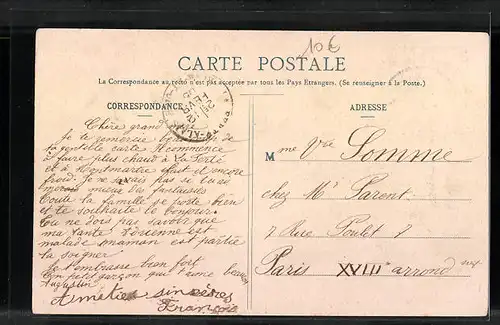 10€
CARTE POSTALE
La Correspondance au recto n'est pas acceptée par tous les Pays Etrangers. (Se renseigner à la Poste.)
CORRESPONDANCE
ADRESSE
Chère grand
Je te remercie de
ta gentille carte. Il commence
à faire plus chaud à La Ferté
et à Montmartre il fait encore
froid. Je ne sais pas si tu as
mieux
Toute la famille se porte bien
et te souhaite le bonjour.
Tu ne dois pas savoir que
ma tante est
malade maman est partie
la soigner
Je t'embrasse bien fort
Ton petit garçon que t'aime beaucoup
Augustin
Amitiés sincères
François
Mme Vve Somme
chez Mr Parent
7 Rue Poulet 7
Paris XVIII arrond